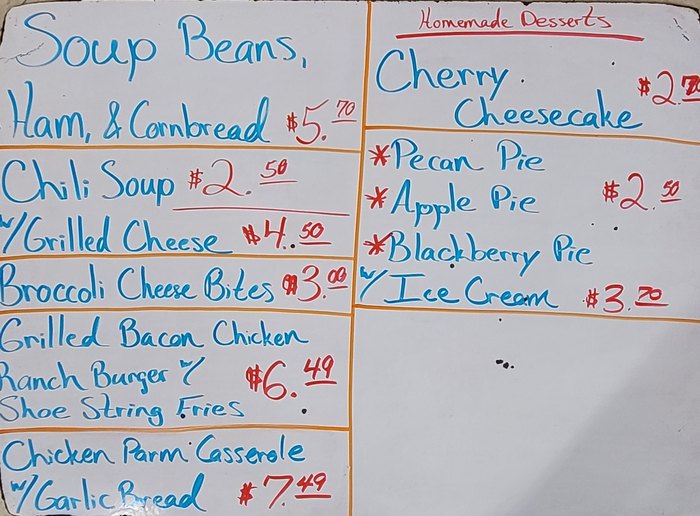 Soup Beans,
Ham, & Cornbread $5.70
Chili Soup $2.50
w/Grilled Cheese $4.50
Broccoli Cheese Bites $3.00
Grilled Bacon Chicken
Ranch Burger w/ $6.49
Shoe String Fries
Chicken Parm Casserole
w/Garlic Bread $7.49
Homemade Desserts
Cherry $2.70
Cheesecake
*Pecan Pie
*Apple Pie $2.50
*Blackberry Pie
w/ Ice Cream $3.70